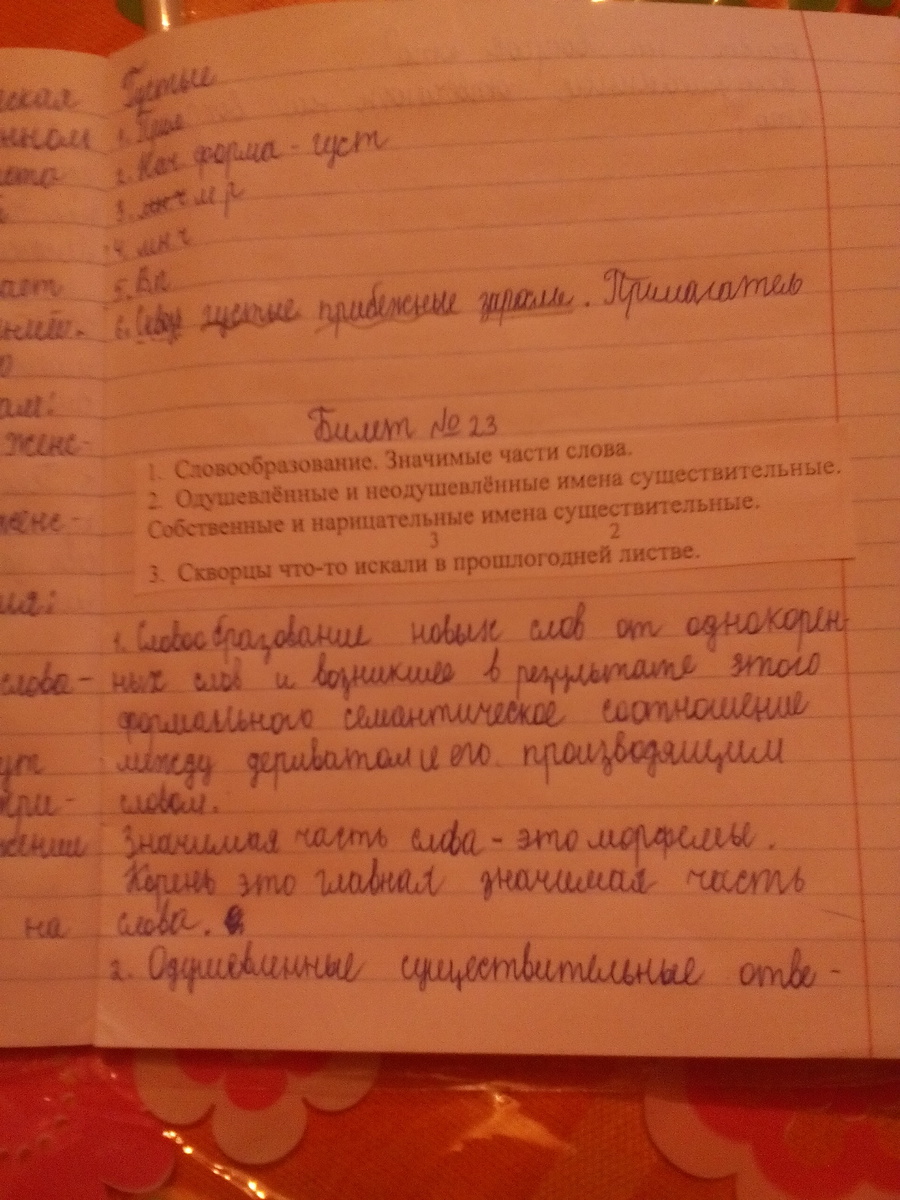 ская
нном
ста
Густые
1. Прил
2. Нач форма - густ
3. мн ч м р
4. мн ч
5. Вп
6. густые прибежные заросли. Прилагатель
Билет № 23
1. Словообразование. Значимые части слова.
2. Одушевлённые и неодушевлённые имена существительные.
Собственные и нарицательные имена существительные.
3 2
3. Скворцы что-то искали в прошлогодней листве.
1. Словообразование новых слов от однокорен-
ных слов и возникшее в результате этого
формального семантическое соотношение
между дериватом и его производящим
словом.
Значимая часть слова - это морфемы.
Корень это главная значимая часть
слова.
2. Одушевленные существительные отве-
ам:
женс-
слова-
на